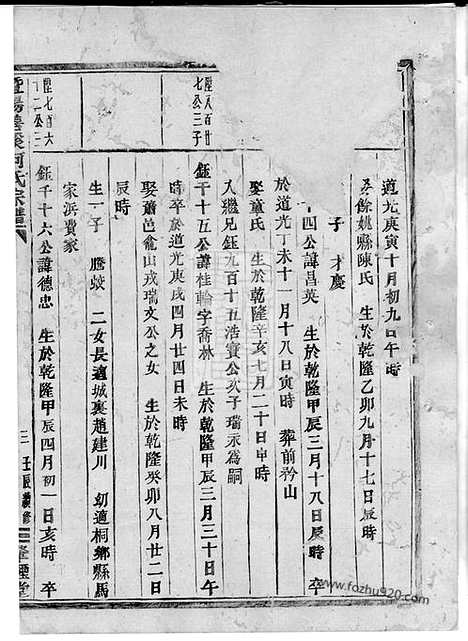 道光庚寅十月初九日午時
娶餘姚縣陳氏 生於乾隆乙卯九月十七日辰時
子 才慶
四公諱昌英 生於乾隆甲辰三月十八日辰時 卒
於道光丁未十一月十八日寅時 葬前衿山
娶童氏 生於乾隆辛亥七月二十日申時
入繼兄鈺九百十五浩寶公次子瑞永為嗣
陞八百廿
七公三子
鈺千十五公諱桂輪字喬林 生於乾隆甲辰三月三十日午
時卒於道光庚戌四月廿四日未時
娶蕭邑龕山戎瑞文公之女 生於乾隆癸卯八月廿二日
辰時
生一子 騰蛟 二女長適城裏趙建川 幼適桐鄉縣馬
家浜費家
陞七百六
十二公三
鈺千十六公諱德忠 生於乾隆甲辰四月初一日亥時 卒
暨陽 何氏宗譜
三 壬辰續修
隆禮堂
www.fozhu920.com